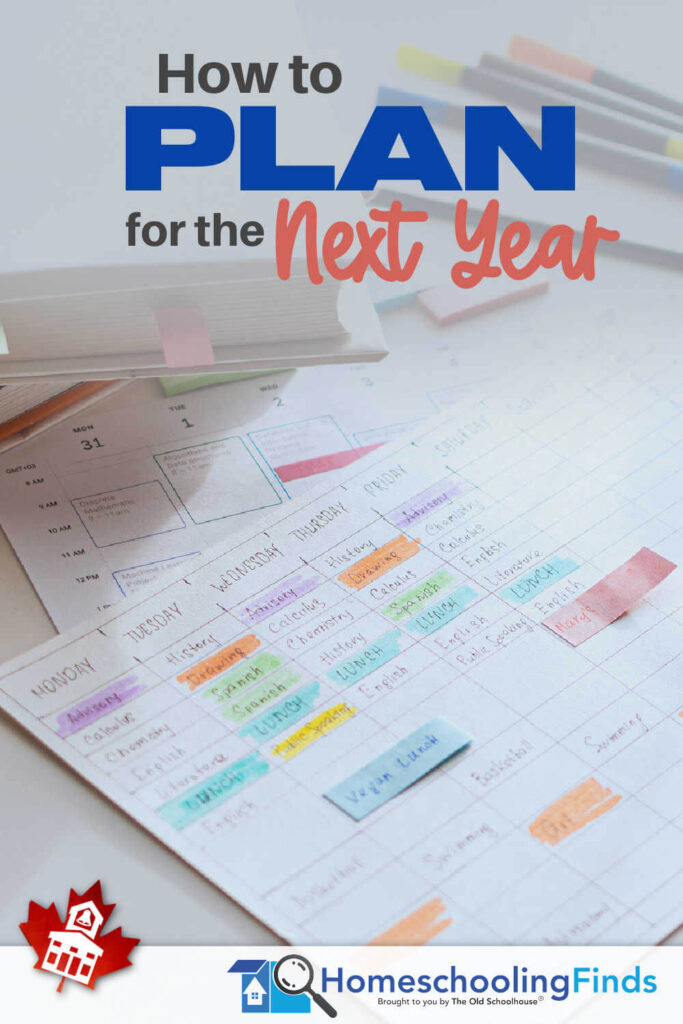 How to
PLAN
for the Next Year
MON
31
TUE
1
WED
2
3
GMT+03
8 AM
9 AM
10 AM
11 AM
12 PM
Discrete
Mathematic
9 – 11am
Algorithms and
Data Structures
8 – 11am
Machine Learn
Project
MONDAY TUESDAY WEDNESDAY THURSDAY FRIDAY SATURDAY
Advisory
Calculus
Chemistry
English
Literature
LUNCH
English
History
Drawing
Spanish
Spanish
LUNCH
Public Speaking
Advisory
Calculus
Chemistry
History
LUNCH
English
History
Drawing
Calculus
Spanish
LUNCH
English
Public Speaking
Advisory
Chemistry
Calculus
English
Literature
LUNCH
English
Mary's
Vegan Lunch
Basketball
Swimming
Basketball
Swimming
Art
HomeschoolingFinds
Brought to you by The Old Schoolhouse®